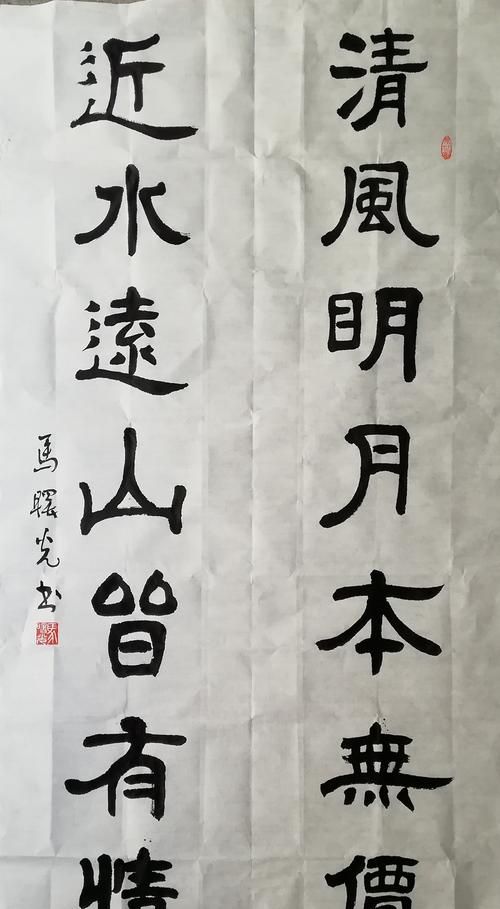 清風明月本無價
近水遠山皆有情
馬曙光书